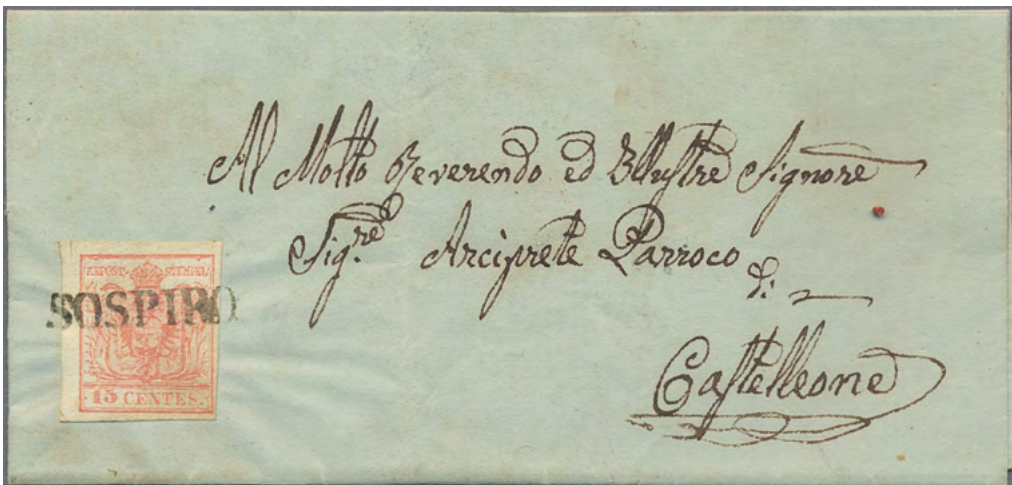 Al Molto Reverendo ed Illustre Signore
Sig.re Arciprete Parroco
di
Castelleone
KK POST-STEMPEL
SOSPIRO
15 CENTES.